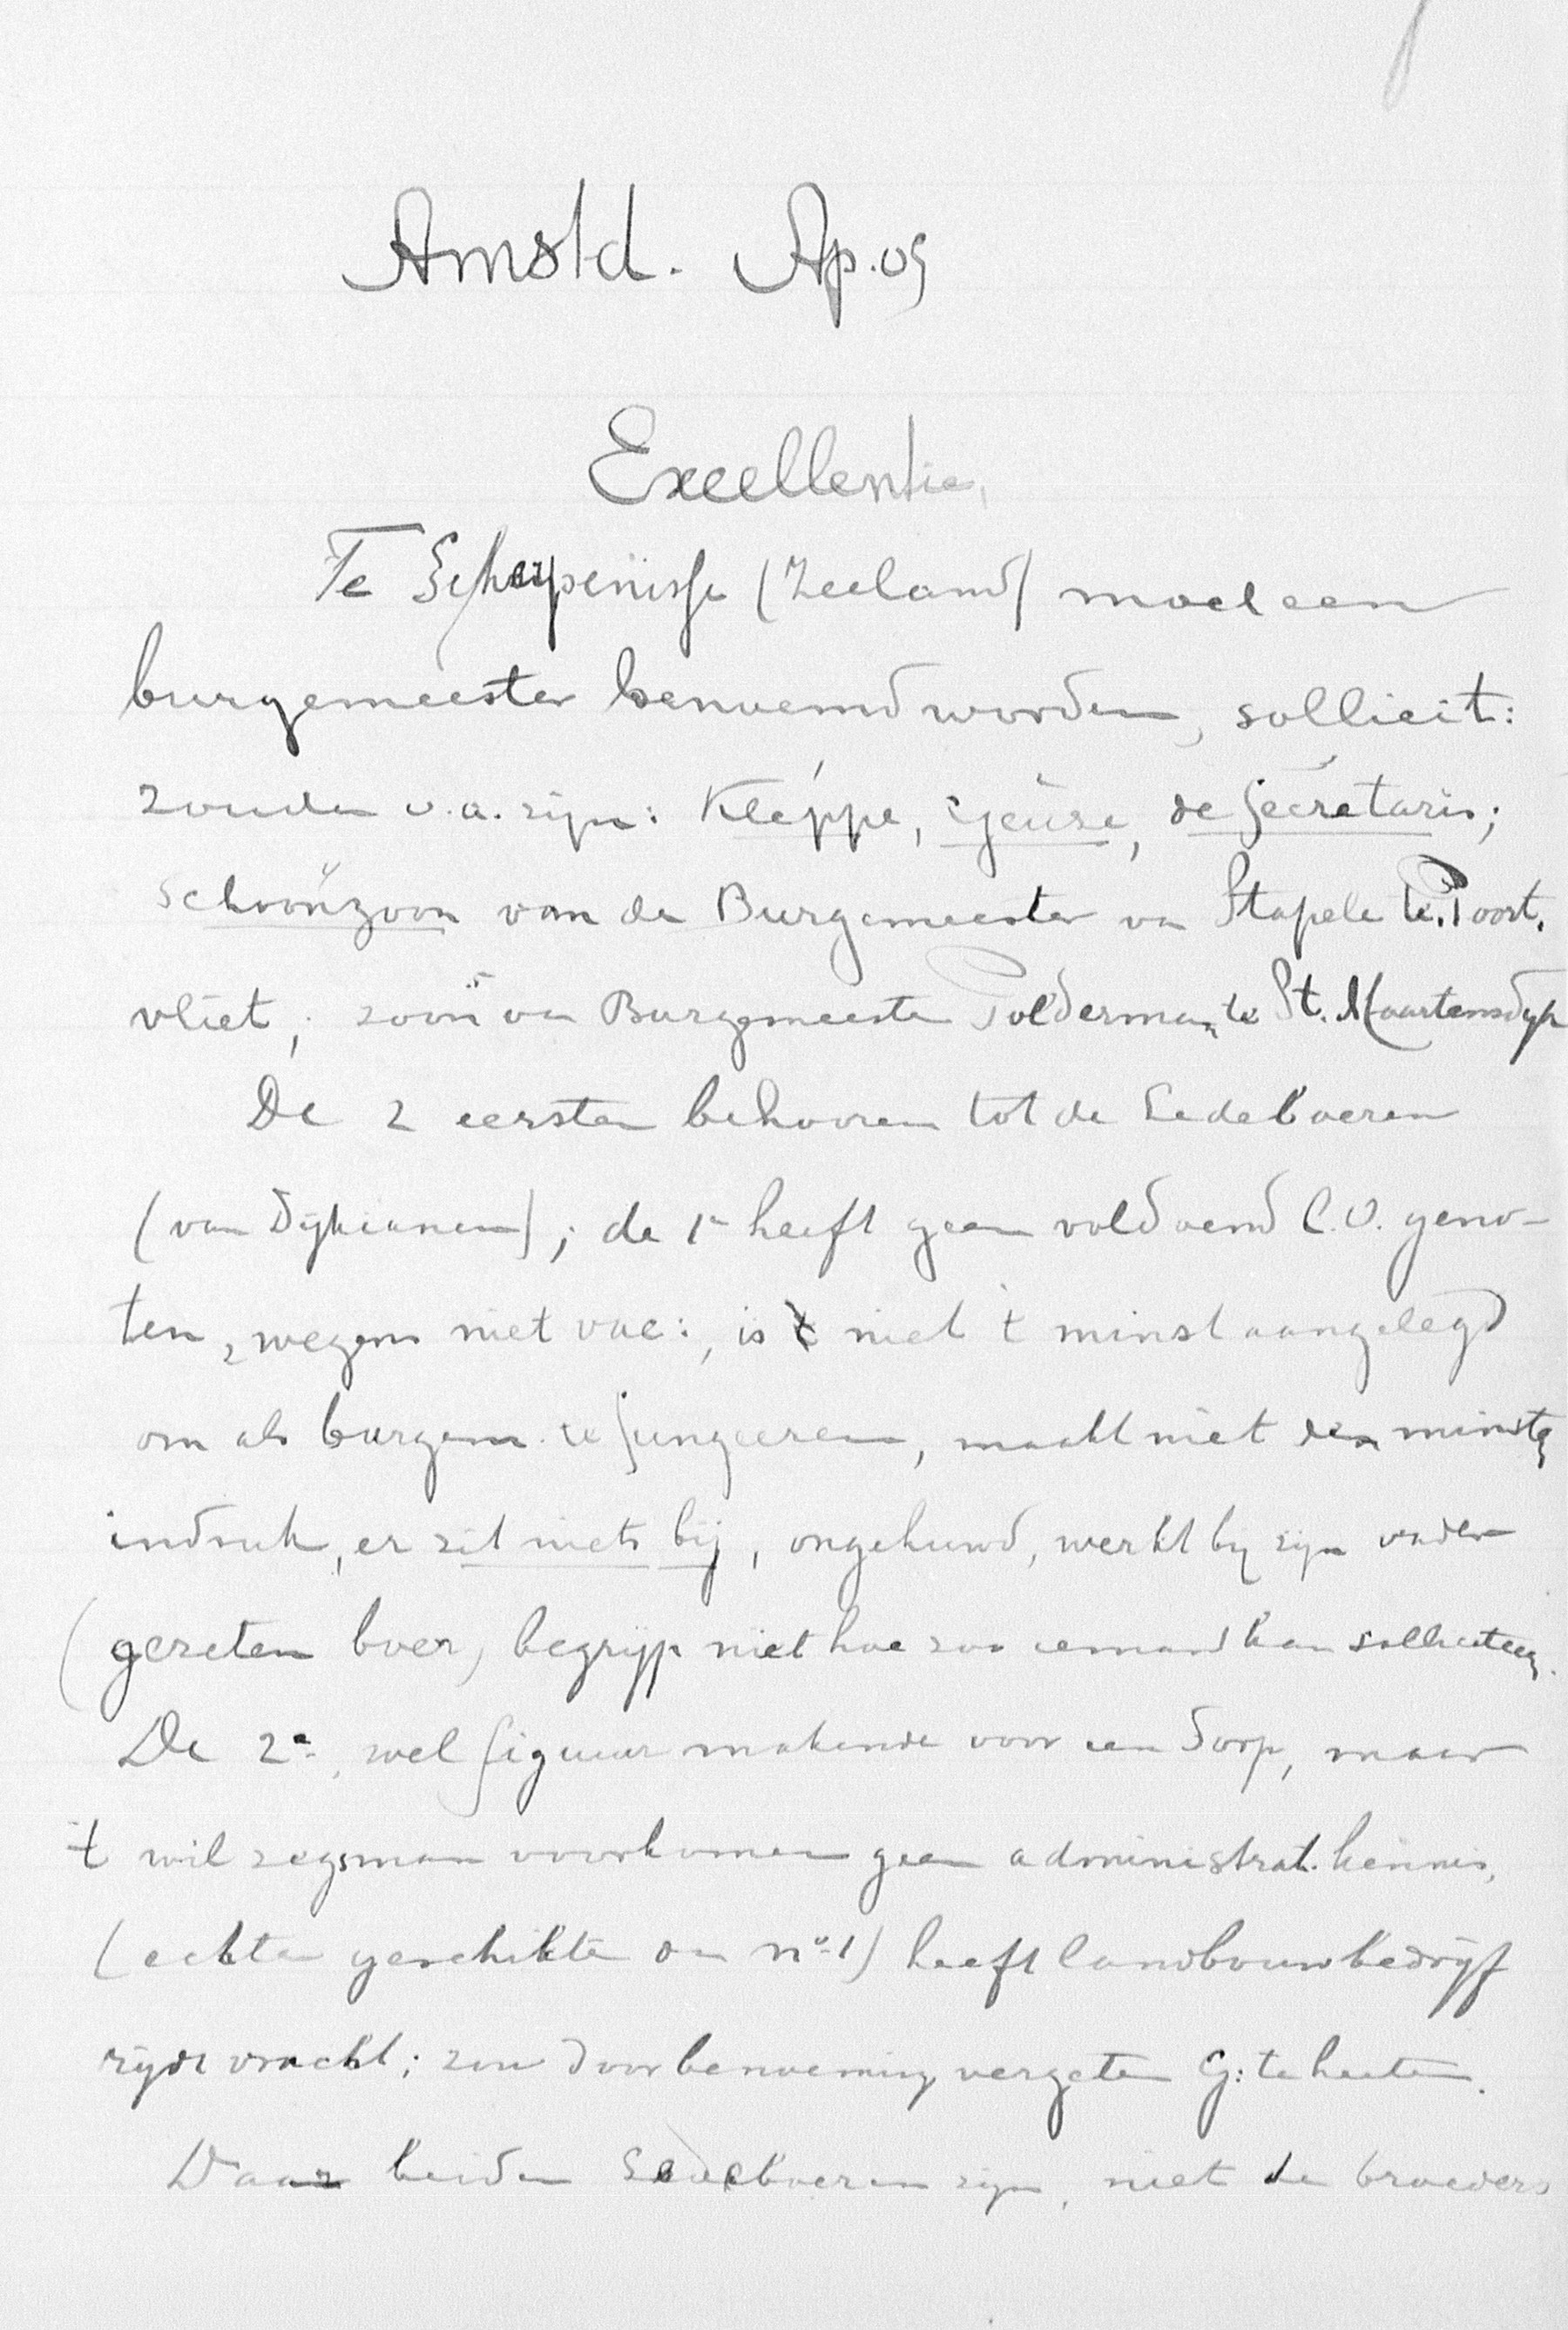 Amstd. Ap. 05
Excellentie,
Te Scherpenisse (Zeeland) moet een
burgemeester benoemd worden, sollicit:
zouden o.a. zijn: Kleppe, Geuze, de Secretaris;
schoonzoon van de Burgemeester van Stapele te Poort.
vliet; zoon van Burgemeester Polderman te St. Maartensdyk
De 2 eersten behooren tot de Ledeboeren
(van Dijkianen); de 1e heeft geen voldoend L.O. geno-
ten, wegens niet vac:, is niet 't minst aangelegd
om als burgem. te fungeeren, maakt niet den minsten
indruk, er zit niets bij, ongehuwd, werkt bij zijn vader
(gezeten boer) begrijp niet hoe zoo iemand kan solliciteeren.
De 2e, wel figuur makende voor een dorp, maar
't wil zegsman voorkomen geen administrat. kennis,
(echter geschikter dan no 1) heeft landbouwbedrijf
rijdt vracht; zou door benoeming vergeten G: te heeten.
Daar beiden Ledeboeren zijn, niet de broeders